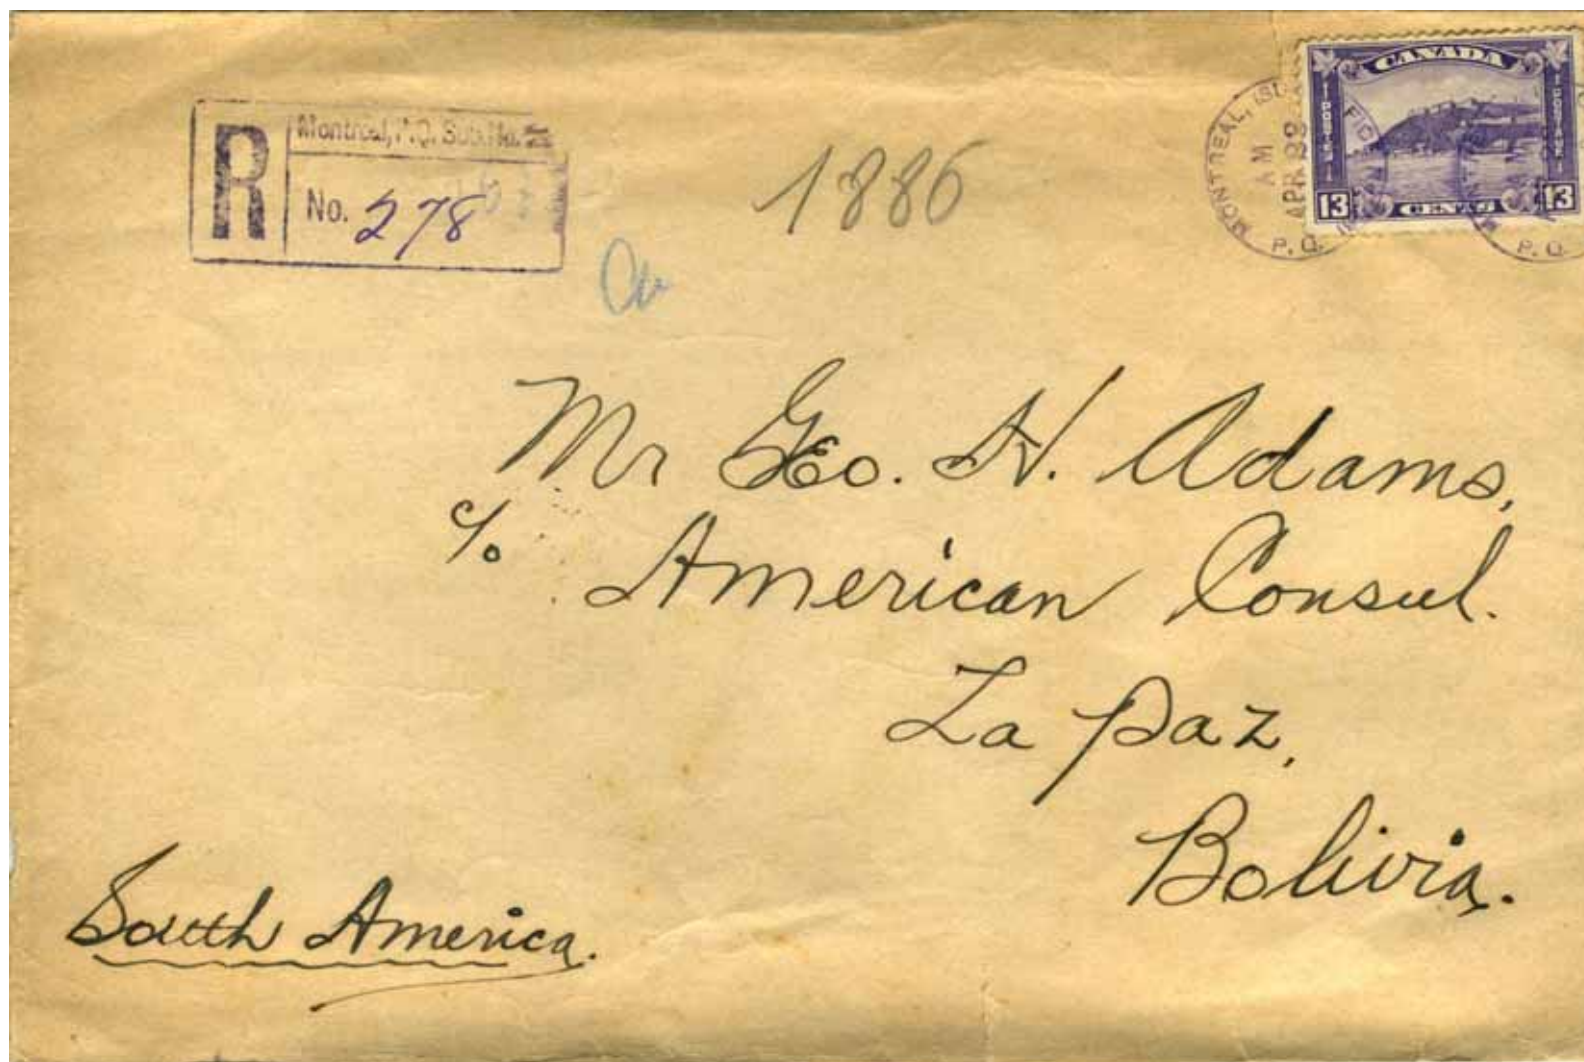 R
Montreal, P.Q. Sub. No.
No. 278
1886
CANADA
POSTAGE
POSTAGE
13 CENTS 13
MONTREAL,
AM
APR
P.Q.
AM
P.Q.
Mr Geo. H. Adams,
c/o American Consul.
La Paz,
Bolivia.
South America.